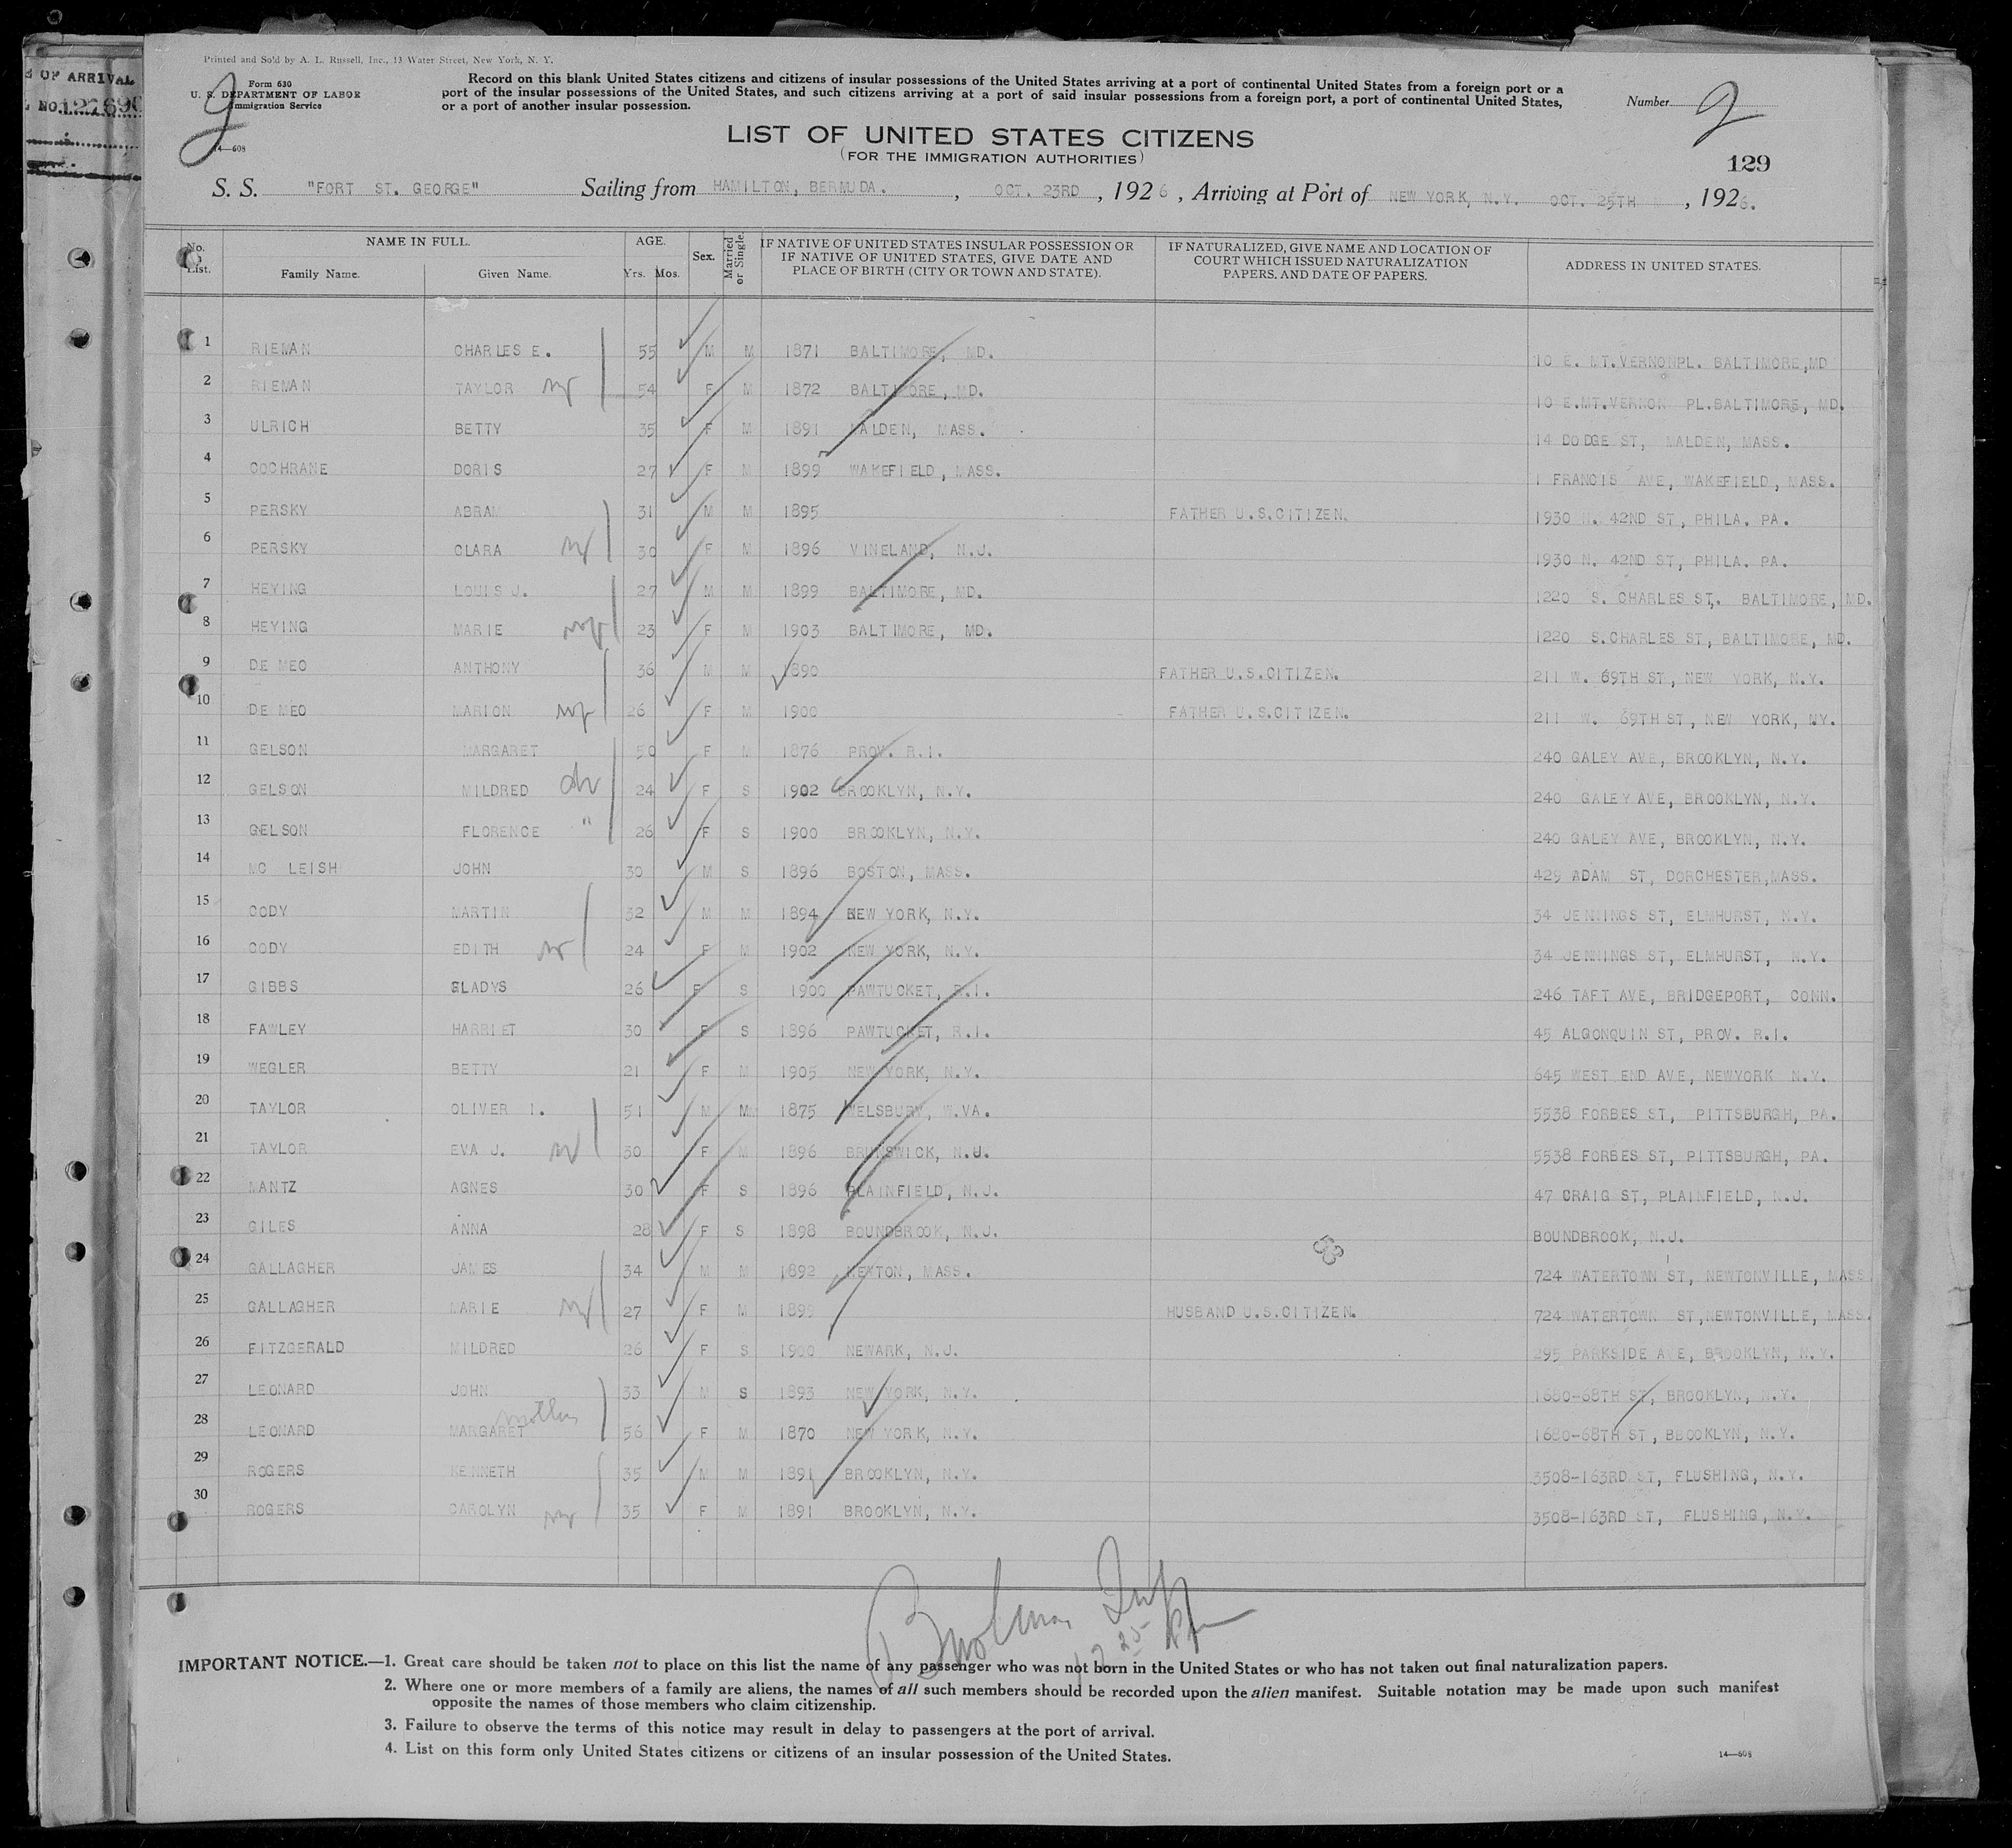 S OF ARRIVAL
NO. 122690
Printed and Sold by A. L. Russell, Inc., 13 Water Street, New York, N. Y.
Form 630
U. S. DEPARTMENT OF LABOR
Immigration Service
14—608
Record on this blank United States citizens and citizens of insular possessions of the United States arriving at a port of continental United States from a foreign port or a
port of the insular possessions of the United States, and such citizens arriving at a port of said insular possessions from a foreign port, a port of continental United States,
or a port of another insular possession.
Number 2
129
LIST OF UNITED STATES CITIZENS
(FOR THE IMMIGRATION AUTHORITIES)
S. S. "FORT ST. GEORGE" Sailing from HAMILTON, BERMUDA. , OCT. 23RD , 1926 , Arriving at Port of NEW YORK, N.Y. OCT. 25TH , 1926.
No. List. NAME IN FULL. AGE. Sex. Married or Single. IF NATIVE OF UNITED STATES INSULAR POSSESSION OR IF NATIVE OF UNITED STATES, GIVE DATE AND PLACE OF BIRTH (CITY OR TOWN AND STATE). IF NATURALIZED, GIVE NAME AND LOCATION OF COURT WHICH ISSUED NATURALIZATION PAPERS, AND DATE OF PAPERS. ADDRESS IN UNITED STATES.
Family Name. Given Name. Yrs. Mos.
1 RIEMAN CHARLES E. 55 M M 1871 BALTIMORE, MD. 10 E. MT.VERNONPL. BALTIMORE,MD
2 RIEMAN TAYLOR 54 F M 1872 BALTIMORE, MD. 10 E.MT.VERNON PL.BALTIMORE, MD.
3 ULRICH BETTY 35 F M 1891 MALDEN, MASS. 14 DODGE ST, MALDEN, MASS.
4 COCHRANE DORIS 27 F M 1899 WAKEFIELD, MASS. 1 FRANCIS AVE, WAKEFIELD, MASS.
5 PERSKY ABRAM 31 M M 1895 FATHER U.S.CITIZEN. 1930 N. 42ND ST, PHILA. PA.
6 PERSKY CLARA 30 F M 1896 VINELAND, N.J. 1930 N. 42ND ST, PHILA. PA.
7 HEYING LOUIS J. 27 M M 1899 BALTIMORE, MD. 1220 S. CHARLES ST, BALTIMORE, MD.
8 HEYING MARIE 23 F M 1903 BALTIMORE, MD. 1220 S.CHARLES ST, BALTIMORE, MD.
9 DE MEO ANTHONY 36 M M 1890 FATHER U.S.CITIZEN. 211 W. 69TH ST, NEW YORK, N.Y.
10 DE MEO MARION 26 F M 1900 FATHER U.S.CITIZEN. 211 W. 69TH ST, NEW YORK, NY.
11 GELSON MARGARET 50 F M 1876 PROV. R.I. 240 GALEY AVE, BROOKLYN, N.Y.
12 GELSON MILDRED 24 F S 1902 BROOKLYN, N.Y. 240 GALEY AVE, BROOKLYN, N.Y.
13 GELSON FLORENCE " 26 F S 1900 BROOKLYN, N.Y. 240 GALEY AVE, BROOKLYN, N.Y.
14 MC LEISH JOHN 30 M S 1896 BOSTON, MASS. 429 ADAM ST, DORCHESTER,MASS.
15 CODY MARTIN 32 M M 1894 NEW YORK, N.Y. 34 JENNINGS ST, ELMHURST, N.Y.
16 CODY EDITH 24 F M 1902 NEW YORK, N.Y. 34 JENNINGS ST, ELMHURST, N.Y.
17 GIBBS GLADYS 26 F S 1900 PAWTUCKET, R.I. 246 TAFT AVE, BRIDGEPORT, CONN.
18 FAWLEY HARRIET 30 F S 1896 PAWTUCKET, R.I. 45 ALGONQUIN ST, PROV. R.I.
19 WEGLER BETTY 21 F M 1905 NEW YORK, N.Y. 645 WEST END AVE, NEWYORK N.Y.
20 TAYLOR OLIVER I. 51 M M 1875 WELSBURY, W.VA. 5538 FORBES ST, PITTSBURGH, PA.
21 TAYLOR EVA J. 30 F M 1896 BRUNSWICK, N.J. 5538 FORBES ST, PITTSBURGH, PA.
22 MANTZ AGNES 30 F S 1896 PLAINFIELD, N.J. 47 CRAIG ST, PLAINFIELD, N.J.
23 GILES ANNA 28 F S 1898 BOUNDBROOK, N.J. BOUNDBROOK, N.J.
24 GALLAGHER JAMES 34 M M 1892 NEWTON, MASS. 724 WATERTOWN ST, NEWTONVILLE, MASS
25 GALLAGHER MARIE 27 F M 1899 HUSBAND U.S.CITIZEN. 724 WATERTOWN ST,NEWTONVILLE, MASS.
26 FITZGERALD MILDRED 26 F S 1900 NEWARK, N.J. 295 PARKSIDE AVE, BROOKLYN, N.Y.
27 LEONARD JOHN 33 M S 1893 NEW YORK, N.Y. 1680-68TH ST, BROOKLYN, N.Y.
28 LEONARD MARGARET mother 56 F M 1870 NEW YORK, N.Y. 1680-68TH ST, BROOKLYN, N.Y.
29 ROGERS KENNETH 35 M M 1891 BROOKLYN, N.Y. 3508-163RD ST, FLUSHING, N.Y.
30 ROGERS CAROLYN 35 F M 1891 BROOKLYN, N.Y. 3508-163RD ST, FLUSHING, N.Y.
IMPORTANT NOTICE.—1. Great care should be taken not to place on this list the name of any passenger who was not born in the United States or who has not taken out final naturalization papers.
2. Where one or more members of a family are aliens, the names of all such members should be recorded upon the alien manifest. Suitable notation may be made upon such manifest
opposite the names of those members who claim citizenship.
3. Failure to observe the terms of this notice may result in delay to passengers at the port of arrival.
4. List on this form only United States citizens or citizens of an insular possession of the United States.
14—608